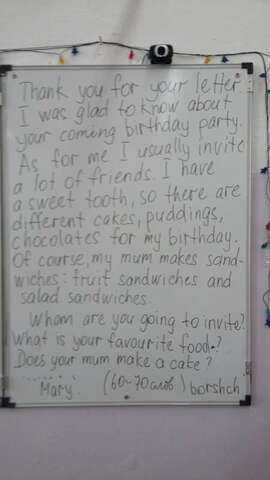 Thank you for your letter.
I was glad to know about
your coming birthday party.
As for me I usually invite
a lot of friends. I have
a sweet tooth, so there are
different cakes, puddings,
chocolates for my birthday.
Of course, my mum makes sand-
wiches: fruit sandwiches and
salad sandwiches.
Whom are you going to invite?
What is your favourite food?
Does your mum make a cake?
Mary. (60-70 слов) borshch